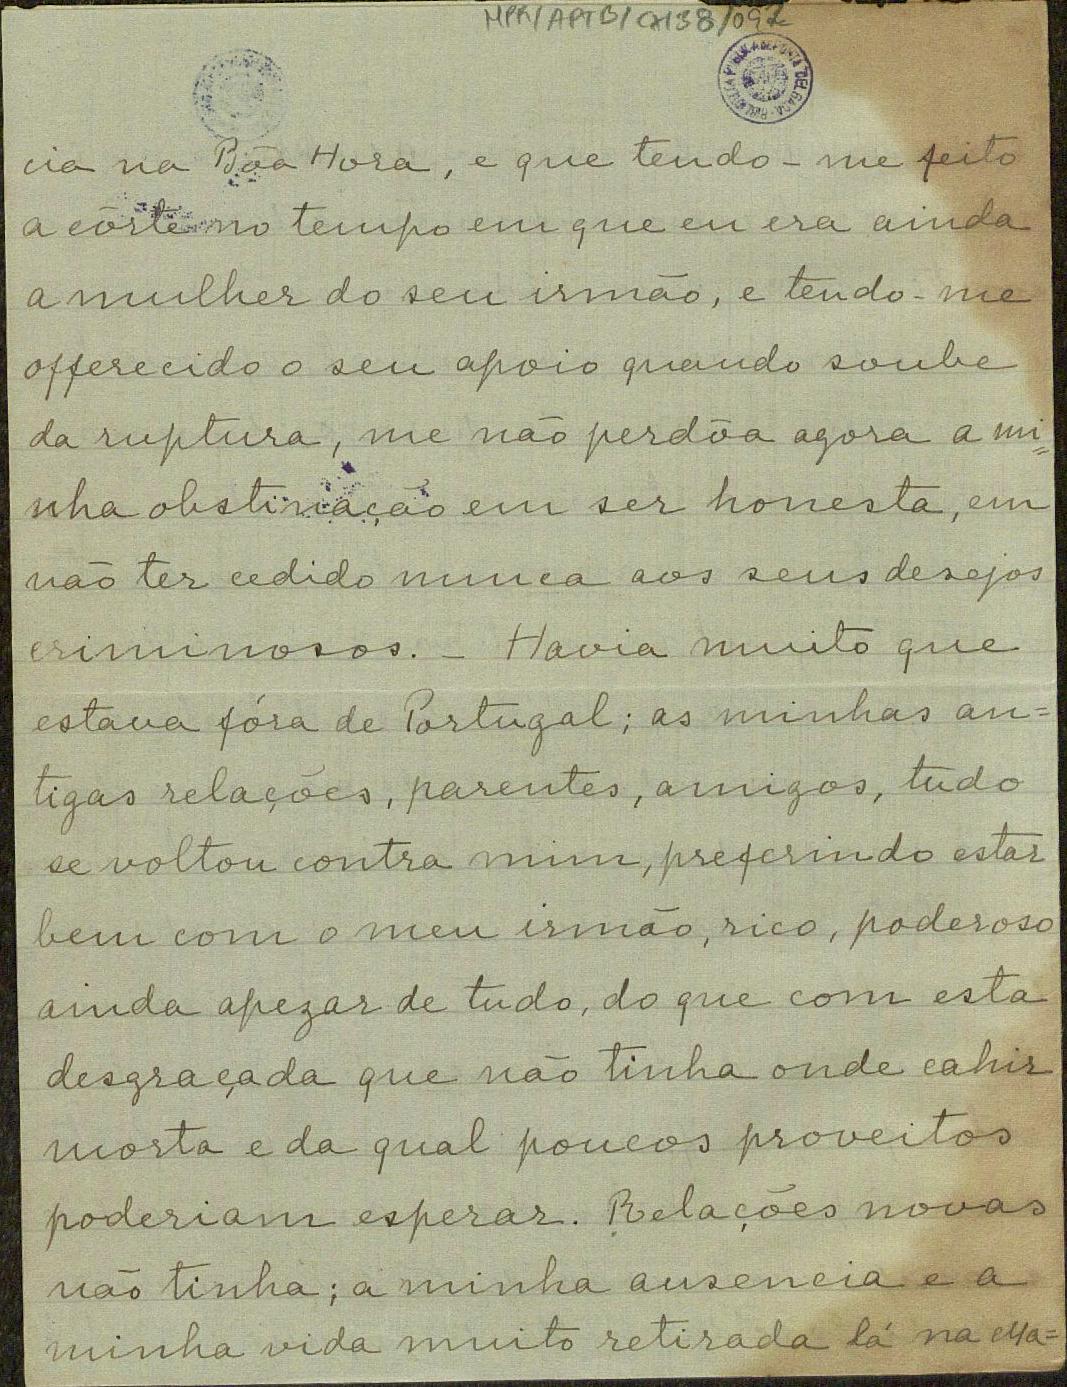 MPR/APTB/CX138/092
BIBLIOTECA PUBLICA DE PONTA DELGADA
cia na Bôa Hora, e que tendo-me feito
a côrte no tempo em que eu era ainda
a mulher do seu irmão, e tendo-me
offerecido o seu apoio quando soube
da ruptura, me não perdôa agora a mi=
nha obstinação em ser honesta, em
não ter cedido nunca aos seus desejos
criminosos. – Havia muito que
estava fóra de Portugal; as minhas an=
tigas relações, parentes, amigos, tudo
se voltou contra mim, preferindo estar
bem com o meu irmão, rico, poderoso
ainda apezar de tudo, do que com esta
desgraçada que não tinha onde cahir
morta e da qual poucos proveitos
poderiam esperar. Relações novas
não tinha; a minha ausencia e a
minha vida muito retirada lá na Ma=